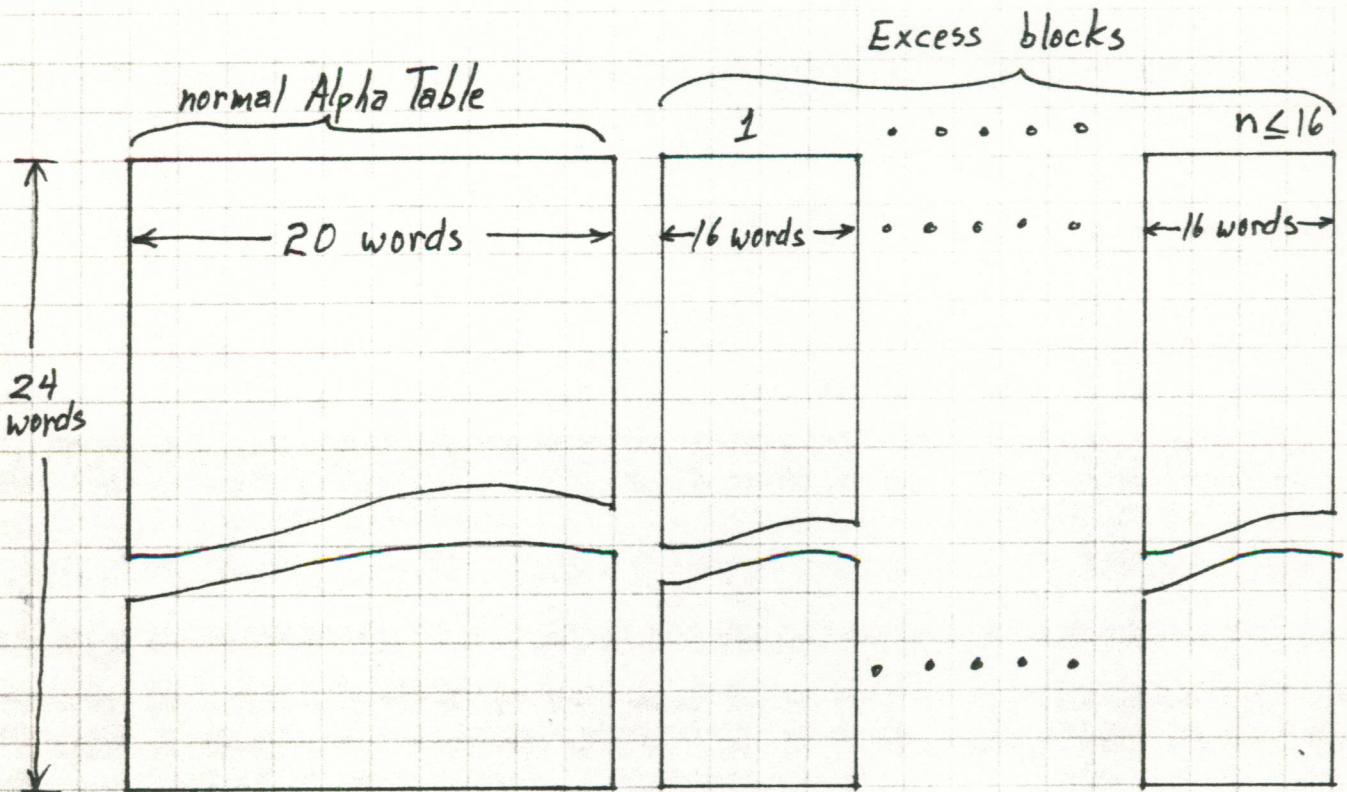 Excess blocks
normal Alpha Table
1 . . . . . n ≤ 16
20 words
16 words . . . . . 16 words
24
words
. . . . .